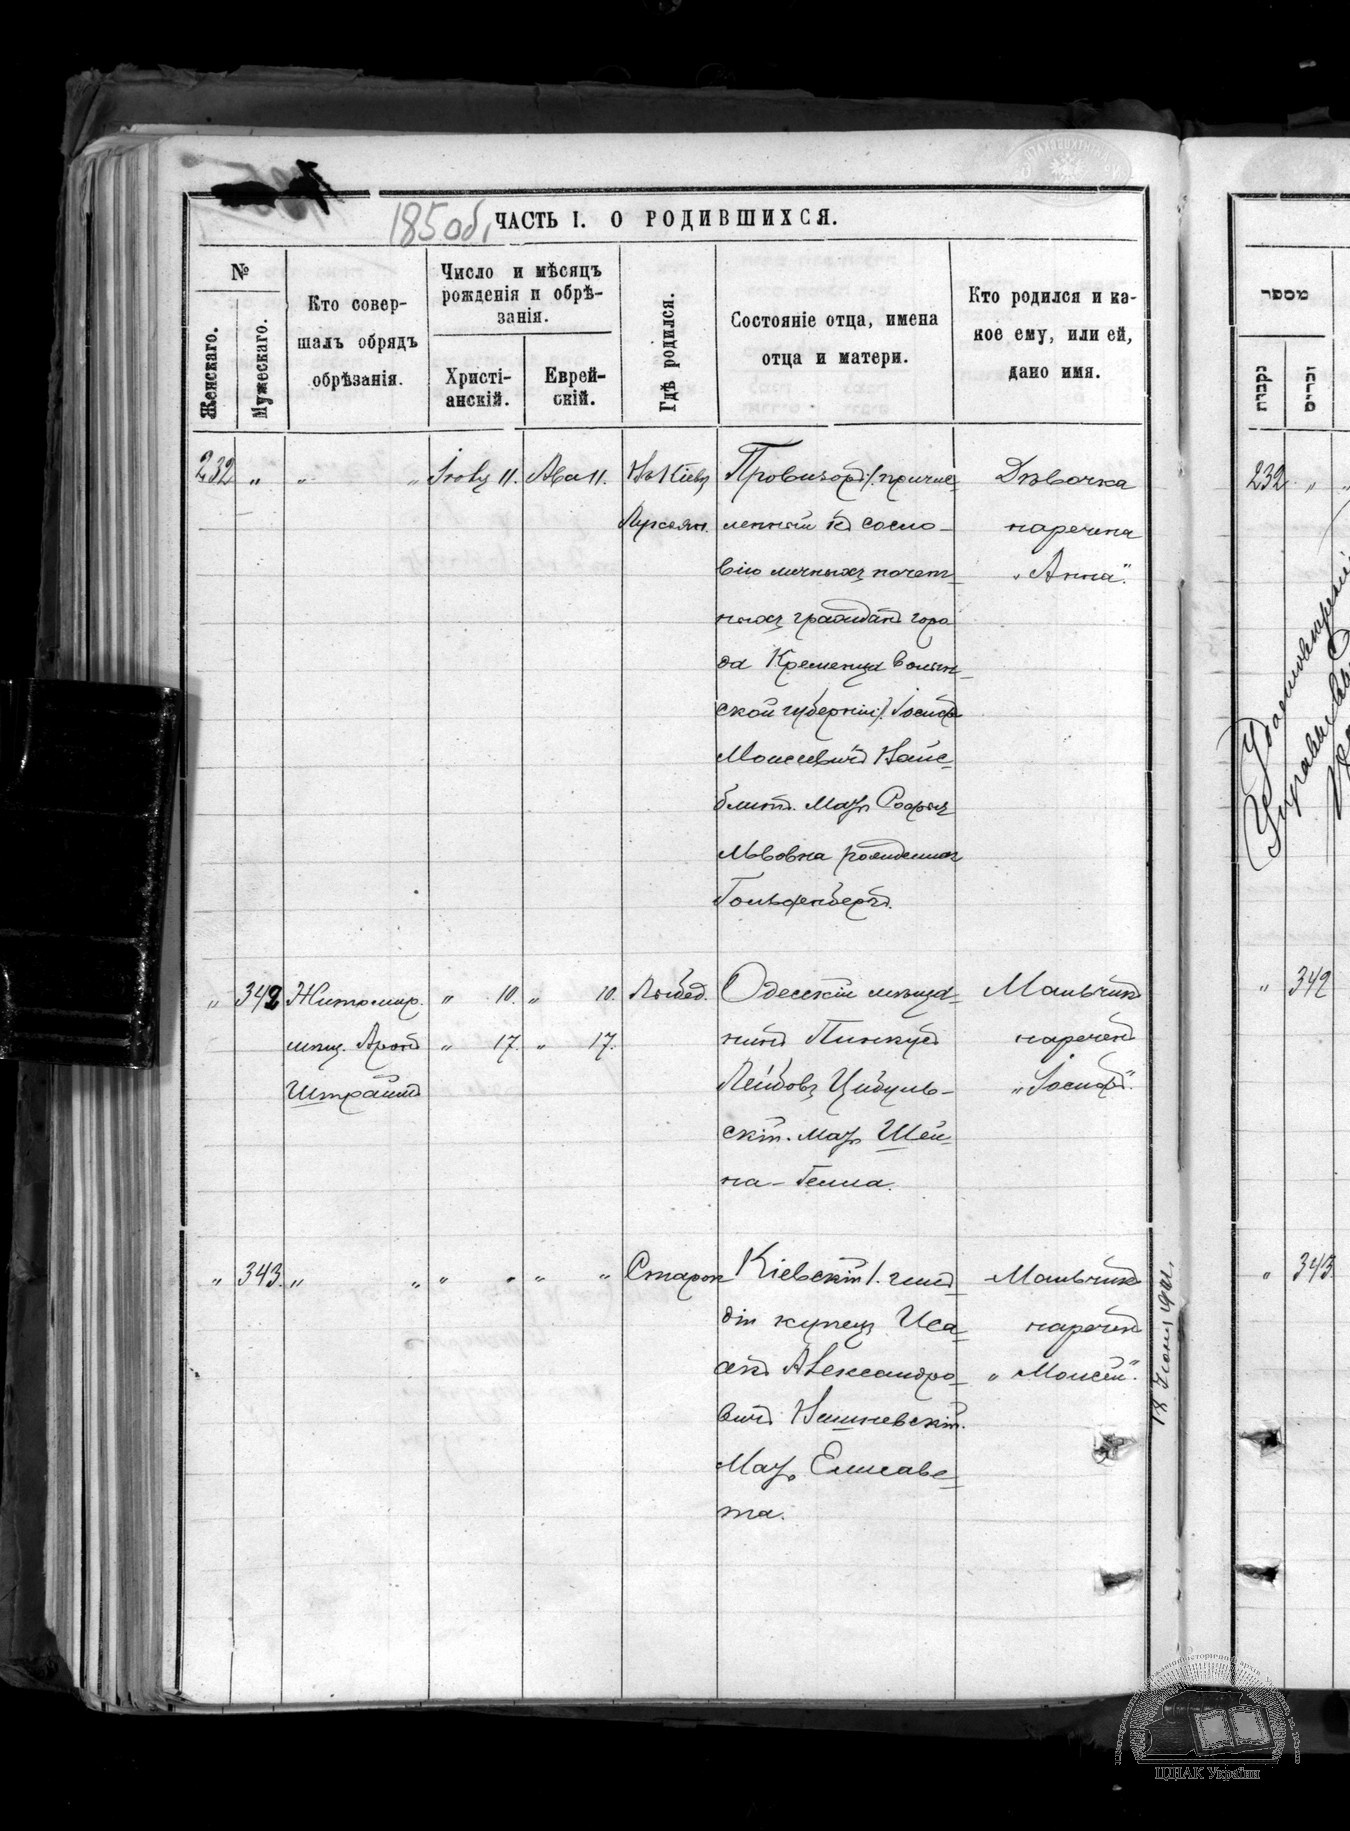 185 об.
ЧАСТЬ I. О РОДИВШИХСЯ.
№
Женскаго.
Мужескаго.
Кто совер-
шалъ обрядъ
обрѣзанія.
Число и мѣсяцъ
рожденія и обрѣ-
занія.
Христі-
анскій.
Еврей-
скій.
Гдѣ родился.
Состояніе отца, имена
отца и матери.
Кто родился и ка-
кое ему, или ей,
дано имя.
232 " " " Іюль 11. Ава 11.
Въ Кіевѣ
Лукьян.
Провизоръ /. причис-
ленный къ сосло-
вію личныхъ почет-
ныхъ гражданъ горо
да Кременца Волын-
ской губерніи /. Іосифъ
Моисеевичъ Вайс-
блитъ. Мать Софья
Львовна рожденная
Гольденбергъ.
Дѣвочка
наречена
"Анна".
" 342 Житомир.
мѣщ. Аронъ
Штраймъ
" 10. " 10.
" 17. " 17.
Лыбед.
Одесскій мѣща-
нинъ Пинкусъ
Лейбовъ Цибуль-
скій. Мать Шей-
на-Гелла.
Мальчикъ
нареченъ
"Іосифъ".
" 343. " " " " " "
Старок
Кіевскій /. гиль
діи купецъ Иса-
акъ Александро-
вичъ Вишневскій.
Мать Елисаве-
та.
Мальчикъ
нареченъ
"Моисей".
מספר
נקבות
זכרים
232 " "
" 342
" 343
ЦДІАК України